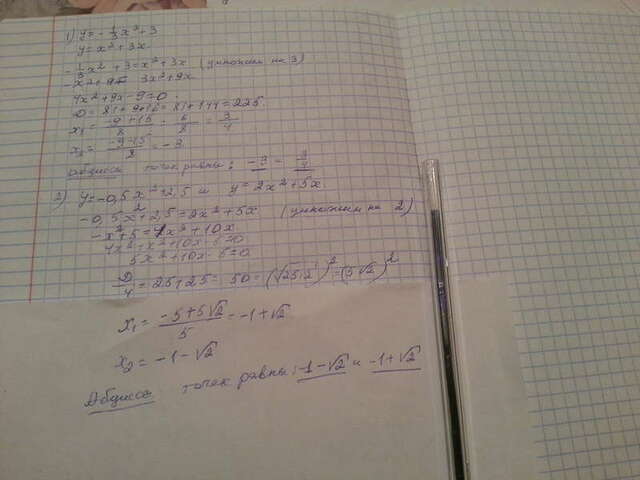 1) y = -1/3 x² + 3
y = x² + 3x
-1/3 x² + 3 = x² + 3x (умножим на 3)
-x² + 9 = 3x² + 9x
4x² + 9x - 9 = 0
D = 81 + 9·16 = 81 + 144 = 225
x₁ = (-9+15)/8 = 6/8 = 3/4
x₂ = (-9-15)/8 = -3
Абциссы точек равны: -3 - 3/4
2) y = -0,5x² + 2,5 и y = 2x² + 5x
-0,5x² + 2,5 = 2x² + 5x (умножим на 2)
-x² + 5 = 4x² + 10x
4x² + x² + 10x - 5 = 0
5x² + 10x - 5 = 0
D/4 = 25 + 25 = 50 = (√25·2)² = (5√2)²
x₁ = (-5+5√2)/5 = -1+√2
x₂ = -1-√2
Абциссы точек равны: -1-√2 и -1+√2